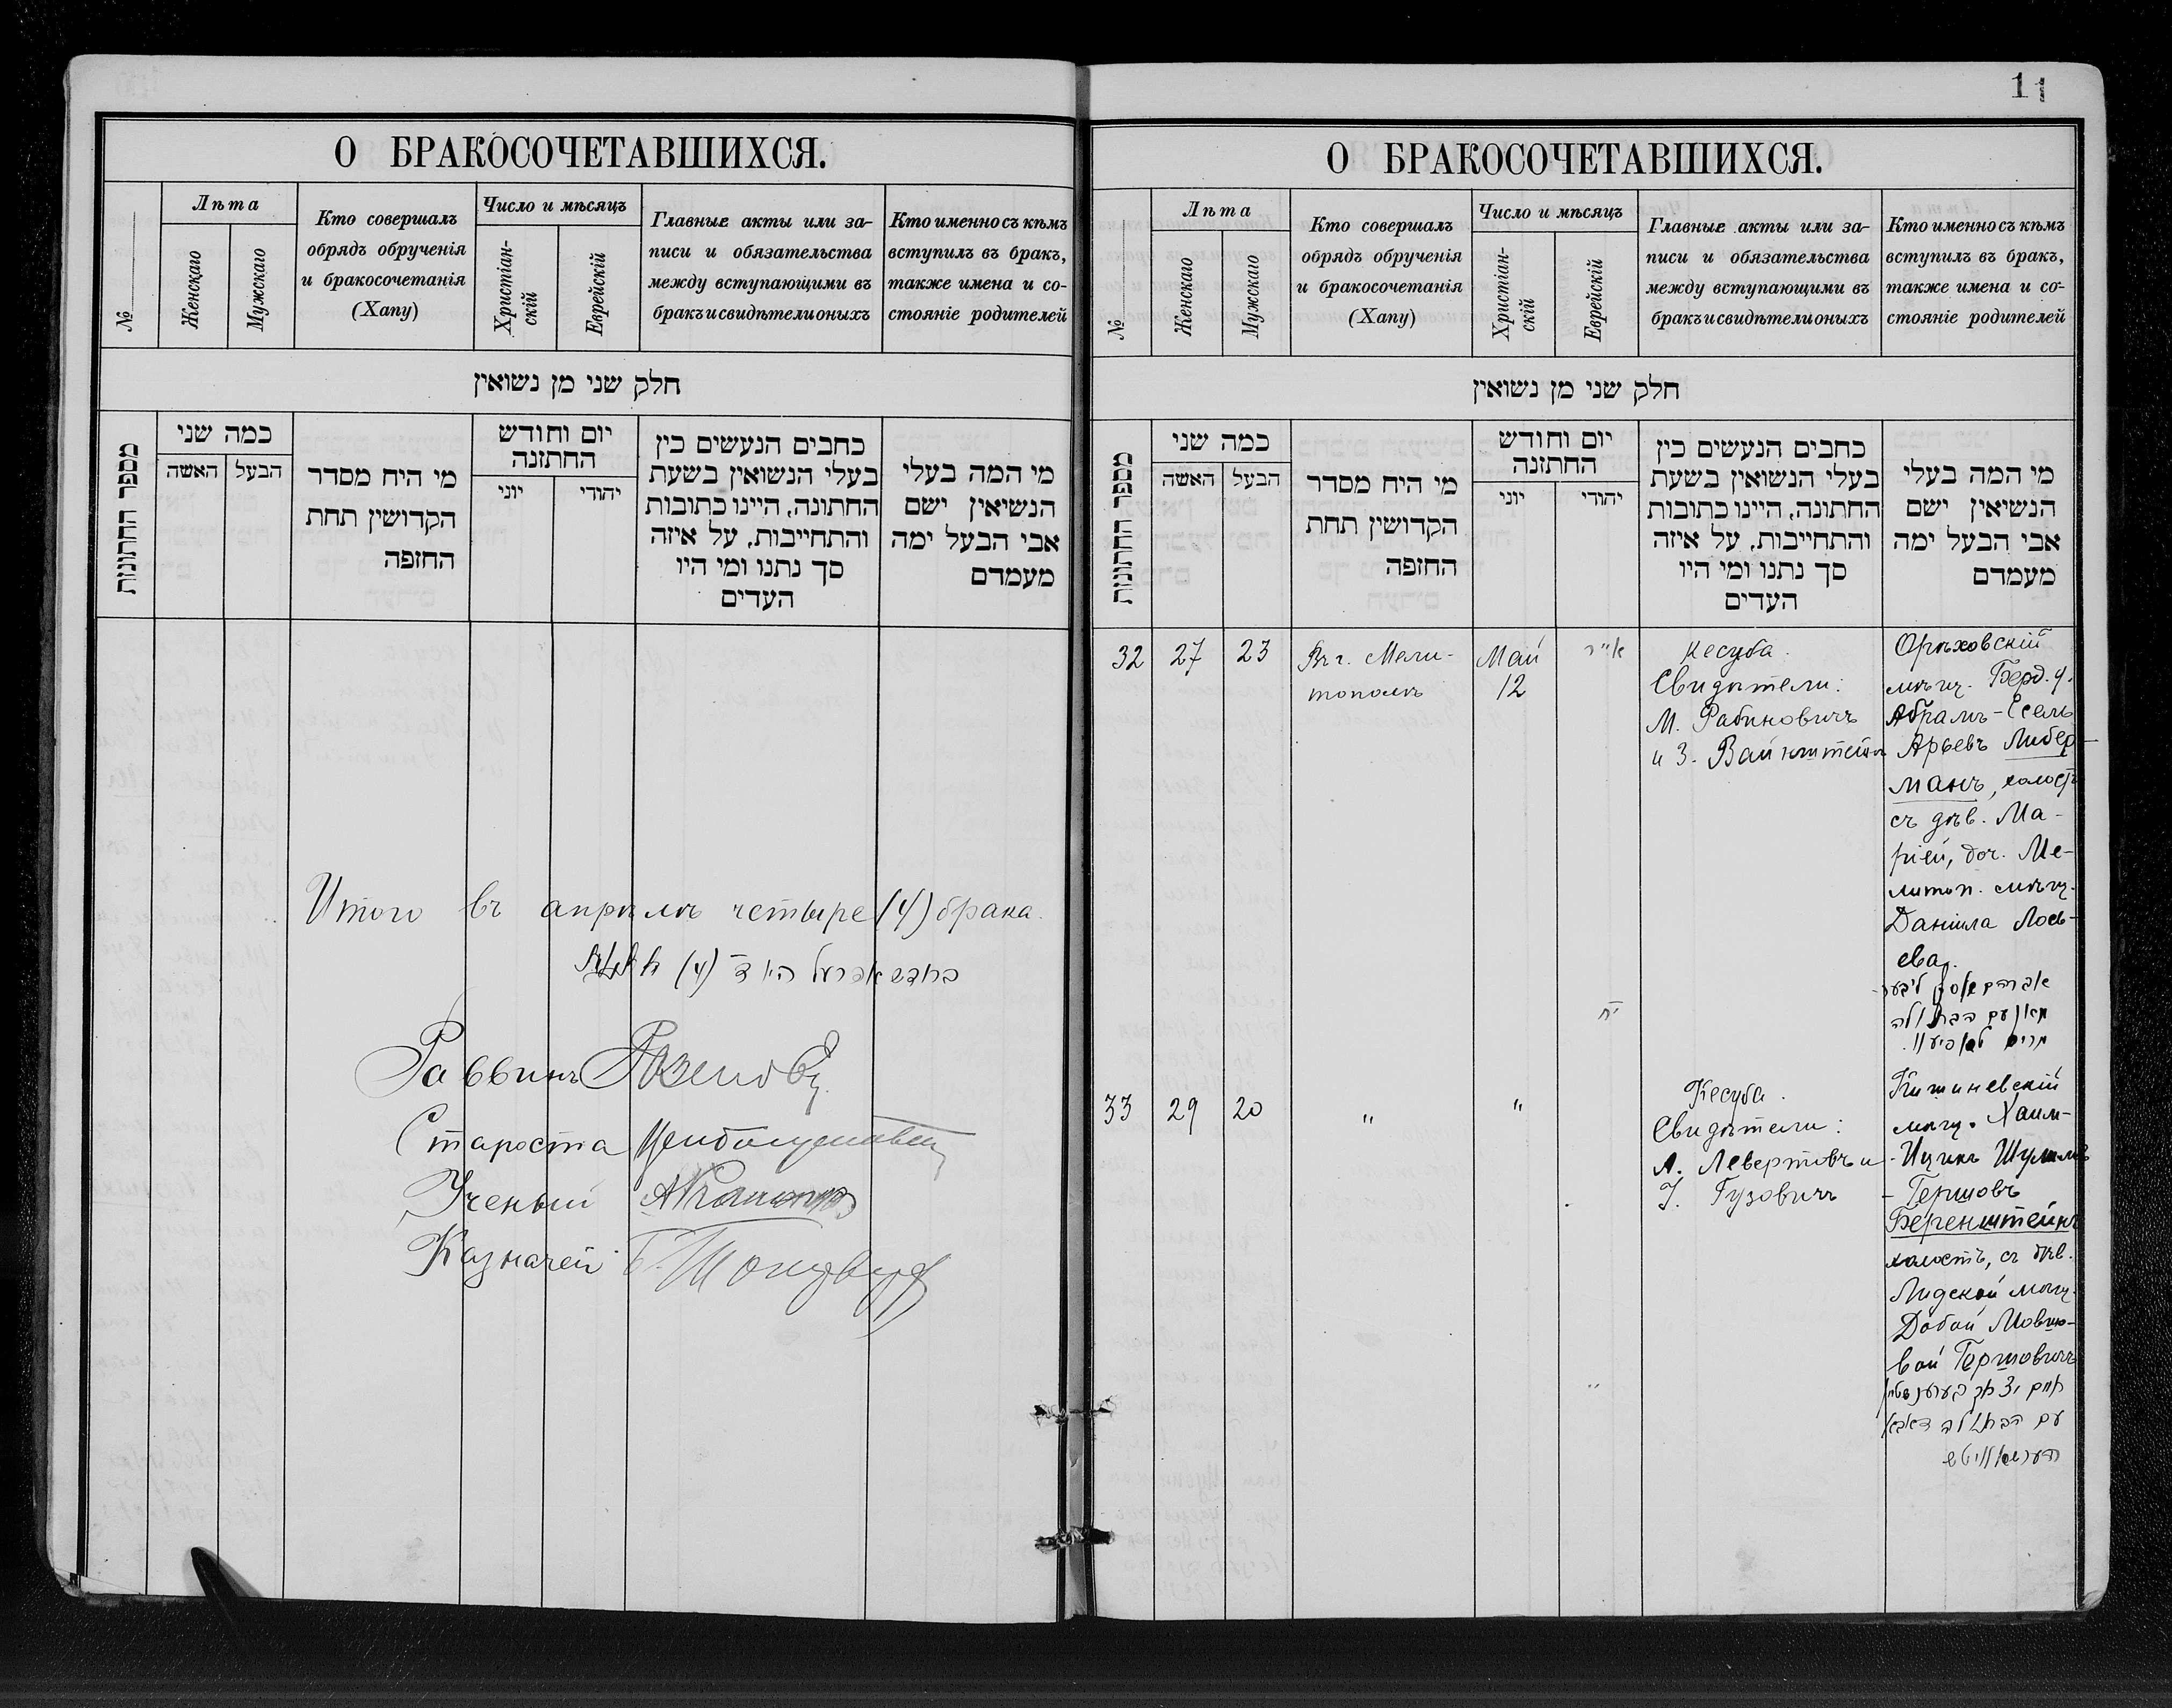 О БРАКОСОЧЕТАВШИХСЯ.
№
Лѣта
Женскаго
Мужскаго
Кто совершалъ
обрядъ обрученія
и бракосочетанія
(Хапу)
Число и мѣсяцъ
Христіан-
скій
Еврейскій
Главные акты или за-
писи и обязательства
между вступающими въ
бракъ и свидѣтели оныхъ
Кто именно съ кѣмъ
вступилъ въ бракъ,
также имена и со-
стояніе родителей
חלק שני מן נשואין
מספר החתונות
כמה שני
האשה
הבעל
מי היח מסדר
הקדושין תחת
החזפה
יום וחודש
החתזנה
יוני
יהודי
כחבים הנעשים כין
בעלי הנשואין בשעת
החתונה, היינו כתובות
והתחייבות, על איזה
סך נתנו ומי היו
העדים
מי המה בעלי
הנשיאין ישם
אבי הבעל ימה
מעמדם
Итого въ апрѣлѣ четыре (4) брака.
בחדש אפריל היו ד (4)
Раввинъ
Староста
Ученый
Казначей
11
О БРАКОСОЧЕТАВШИХСЯ.
№
Лѣта
Женскаго
Мужскаго
Кто совершалъ
обрядъ обрученія
и бракосочетанія
(Хапу)
Число и мѣсяцъ
Христіан-
скій
Еврейскій
Главные акты или за-
писи и обязательства
между вступающими въ
бракъ и свидѣтели оныхъ
Кто именно съ кѣмъ
вступилъ въ бракъ,
также имена и со-
стояніе родителей
חלק שני מן נשואין
מספר החתונות
כמה שני
האשה
הבעל
מי היח מסדר
הקדושין תחת
החזפה
יום וחודש
החתזנה
יוני
יהודי
כחבים הנעשים כין
בעלי הנשואין בשעת
החתונה, היינו כתובות
והתחייבות, על איזה
סך נתנו ומי היו
העדים
מי המה בעלי
הנשיאין ישם
אבי הבעל ימה
מעמדם
32
27
23
Въ г. Мели-
тополѣ
Май
12
אייר
יח
Кесуба.
Свидѣтели:
М. Рабиновичъ
и З. Вайнштейнъ
Орѣховскій
мѣщ. Берд. у.
Абрамъ-Есель
Арьевъ Либер-
манъ, холостъ
съ дѣв. Ма-
ріей, доч. Ме-
литоп. мѣщ.
Даніила Лось-
ева.
ליבער-
מאן עם הבתולה
מרים
33
29
20
"
"
"
Кесуба.
Свидѣтели:
А. Левертовъ и
І. Гузовичъ
Кишиневскій
мѣщ. Хаим-
-Ицикъ Шулимъ
-Гершовъ
Беренштейнъ
холостъ, съ дѣв.
Лидской мѣщ.
Добой Мовшо-
вой Гершовичъ
חיים יצחק בערענשטיין
עם הבתולה דאבא
הערשאוויטש